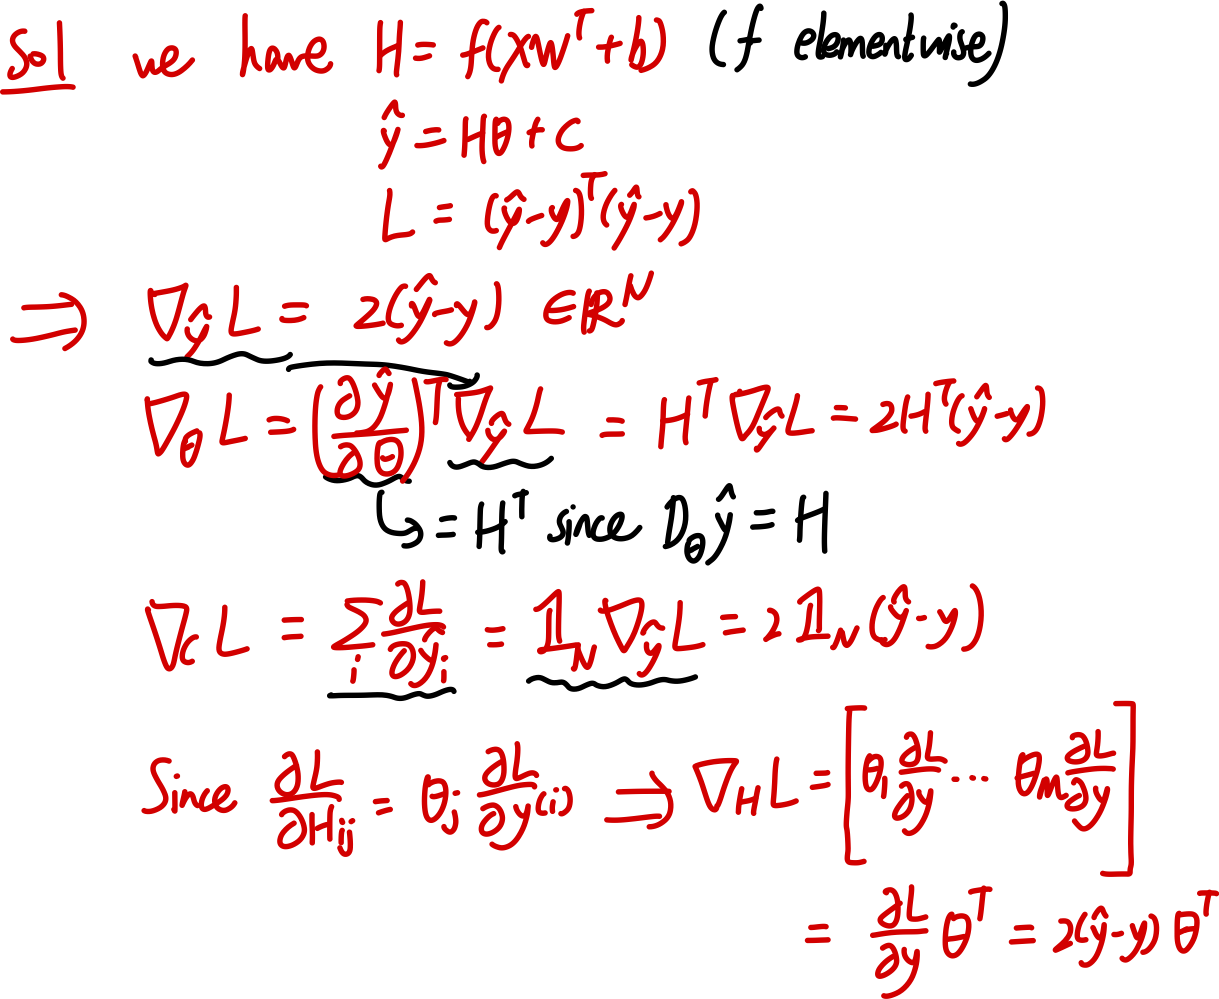 Sol we have H = f(XWᵀ+b) (f elementwise)
ŷ = Hθ + C
L = (ŷ-y)ᵀ(ŷ-y)
⇒ ∇_ŷ L = 2(ŷ-y) ∈ ℝᴺ
∇_θ L = (∂ŷ/∂θ)ᵀ ∇_ŷ L = Hᵀ ∇_ŷ L = 2Hᵀ(ŷ-y)
↳ = Hᵀ since D_θ ŷ = H
∇_C L = ∑_i ∂L/∂ŷ_i = 𝟙_N ∇_ŷ L = 2 𝟙_N (ŷ-y)
Since ∂L/∂H_ij = θ_j ∂L/∂y(i) ⇒ ∇_H L = [θ_1 ∂L/∂y ... θ_m ∂L/∂y]
= ∂L/∂y θᵀ = 2(ŷ-y) θᵀ